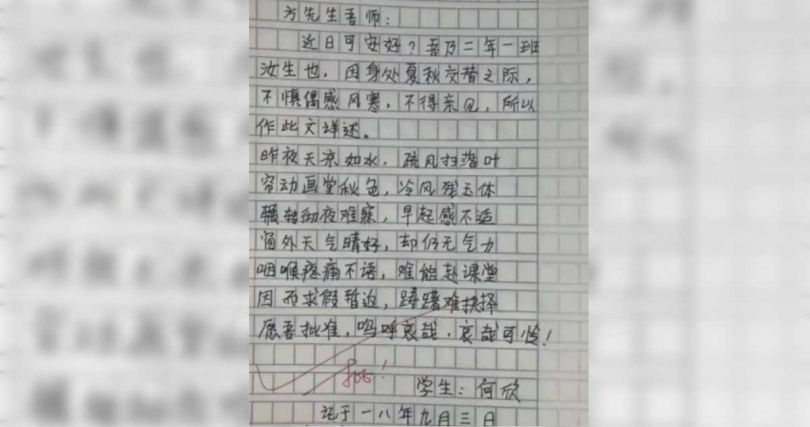 方先生吾师：
近日可安好？吾乃二年一班
汝生也，因身处夏秋交替之际，
不慎偶感风寒，不得亲见，所以
作此文详述。
昨夜天凉如水，疏风扫落叶
帘动画堂秋色，冷风残玉体
辗转彻夜难寐，早起感不适
窗外天气晴好，却仍无气力
咽喉疼痛不语，难能赴课堂
因而求假暂迫，踌躇难抉择
愿吾批准，呜呼哀哉，哀哉可怜！
学生：何欣
记于一八年九月三日